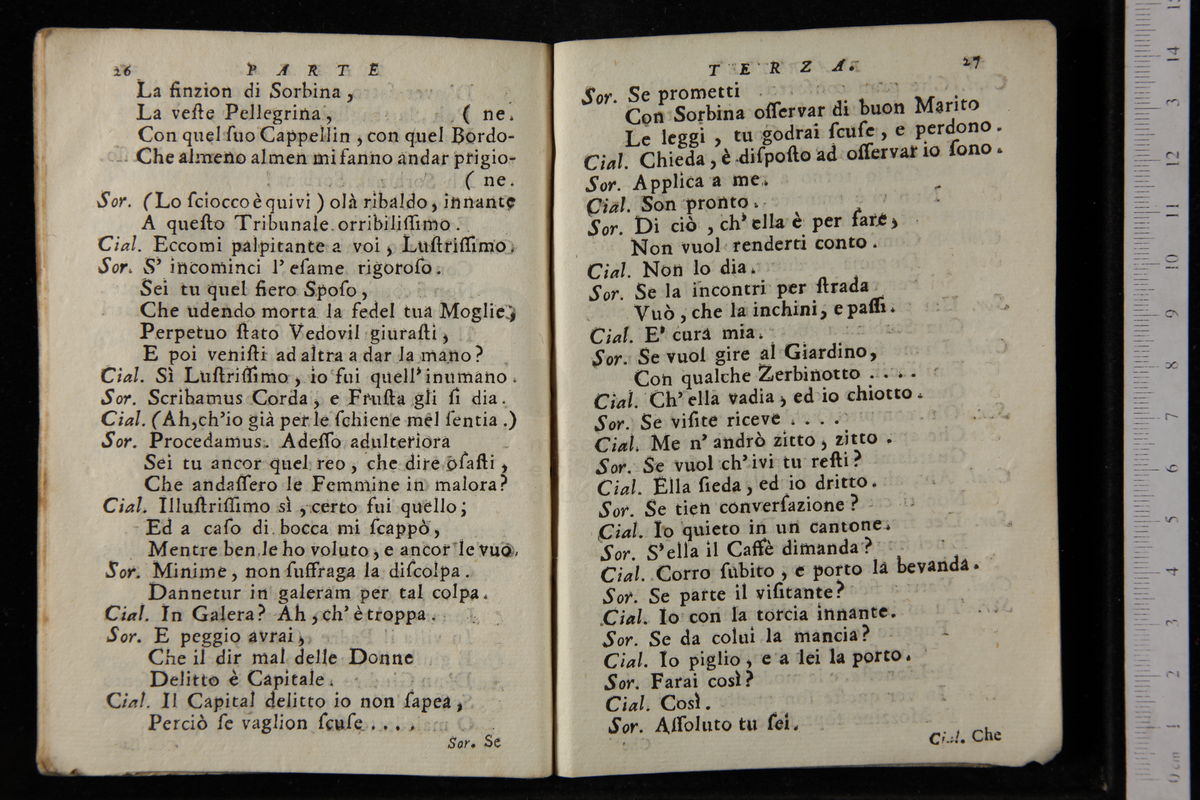 26 PARTE
La finzion di Sorbina,
La veſte Pellegrina, ( ne.
Con quel ſuo Cappellin, con quel Bordo-
Che almeno almen mi fanno andar prigio-
( ne.
Sor. (Lo ſciocco è quivi) olà ribaldo, innante
A queſto Tribunale orribiliſſimo.
Cial. Eccomi palpitante a voi, Luſtriſſimo.
Sor. S' incominci l' eſame rigoroſo.
Sei tu quel fiero Spoſo,
Che udendo morta la fedel tua Moglie,
Perpetuo ſtato Vedovil giuraſti,
E poi veniſti ad altra a dar la mano?
Cial. Sì Luſtriſſimo, io fui quell' inumano.
Sor. Scribamus Corda, e Fruſta gli ſi dia.
Cial. (Ah, ch'io già per le ſchiene mel ſentia.)
Sor. Procedamus. Adeſſo adulteriora
Sei tu ancor quel reo, che dire oſaſti,
Che andaſſero le Femmine in malora?
Cial. Illuſtriſſimo sì, certo fui quello;
Ed a caſo di bocca mi ſcappò,
Mentre ben le ho voluto, e ancor le vuo.
Sor. Minime, non ſuffraga la diſcolpa.
Dannetur in galeram per tal colpa.
Cial. In Galera? Ah, ch' è troppa.
Sor. E peggio avrai,
Che il dir mal delle Donne
Delitto è Capitale.
Cial. Il Capital delitto io non ſapea,
Perciò ſe vaglion ſcuſe ....
Sor. Se
TERZA. 27
Sor. Se prometti
Con Sorbina oſſervar di buon Marito
Le leggi, tu godrai ſcuſe, e perdono.
Cial. Chieda, è diſpoſto ad oſſervar io ſono.
Sor. Applica a me.
Cial. Son pronto.
Sor. Di ciò, ch' ella è per fare,
Non vuol renderti conto.
Cial. Non lo dia.
Sor. Se la incontri per ſtrada
Vuò, che la inchini, e paſſi.
Cial. E' cura mia.
Sor. Se vuol gire al Giardino,
Con qualche Zerbinotto ....
Cial. Ch' ella vadia, ed io chiotto.
Sor. Se viſite riceve ....
Cial. Me n' andrò zitto, zitto.
Sor. Se vuol ch' ivi tu reſti?
Cial. Ella ſieda, ed io dritto.
Sor. Se tien converſazione?
Cial. Io quieto in un cantone.
Sor. S'ella il Caffè dimanda?
Cial. Corro ſubito, e porto la bevanda.
Sor. Se parte il viſitante?
Cial. Io con la torcia innante.
Sor. Se da colui la mancia?
Cial. Io piglio, e a lei la porto.
Sor. Farai così?
Cial. Così.
Sor. Aſſoluto tu ſei.
Cial. Che